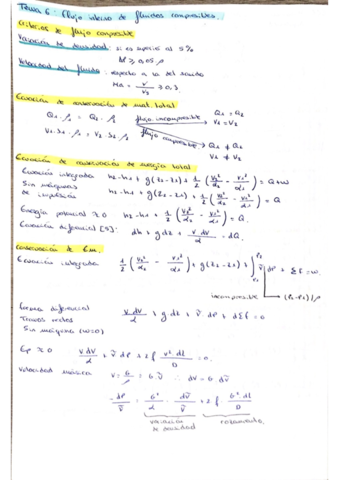 Tema 6: Flujo interno de fluidos compresibles.
Criterios de flujo compresible
Variación de densidad: si es superior al 5%
Δρ ≥ 0,05 ρ
Velocidad del fluido: respecto a la del sonido
Ma = v/vs ≥ 0,3
Ecuación de conservación de mat. total
Q1 · ρ1 = Q2 · ρ2 flujo incompresible Q1 = Q2
V1 = V2
V1 · S1 · ρ1 = V2 · S2 · ρ2 flujo compresible Q1 ≠ Q2
V1 ≠ V2
Ecuación de conservación de energía total
Ecuación integrada h2-h1 + g(z2-z1) + 1/2 (V2²/α2 - V1²/α1) = Q+W
Sin máquinas de impulsión h2-h1 + g(z2-z1) + 1/2 (V2²/α2 - V1²/α1) = Q
Energía potencial ≈ 0 h2-h1 + 1/2 (V2²/α2 - V1²/α1) = Q.
Ecuación diferencial dh + g dz + V dV/α = dQ.
Conservación de Em.
Ecuación integrada 1/2 (V2²/α2 - V1²/α1) + g(z2-z1) + ∫ṽ dP + ΣF = W.
incompresible (P2-P1)/ρ
Forma diferencial V dV/α + g dz + ṽ dP + dΣF = 0
Tramos rectos
Sin máquina (W=0)
Ep ≈ 0 V dV/α + ṽ dP + 2f V² dl/D = 0.
Velocidad másica V = G/ρ = G ṽ : dV = G dṽ
-dP/ṽ = G²/α · dṽ/ṽ + 2f G² dl/D
variación de densidad rozamiento.